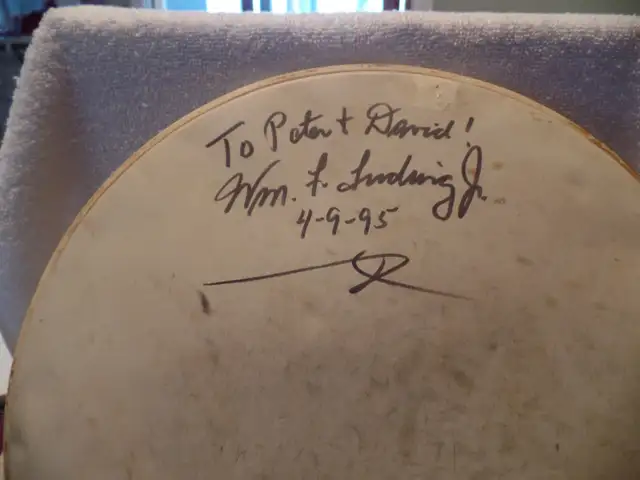 To Peter + David!
Wm. F. Ludwig Jr.
4-9-95